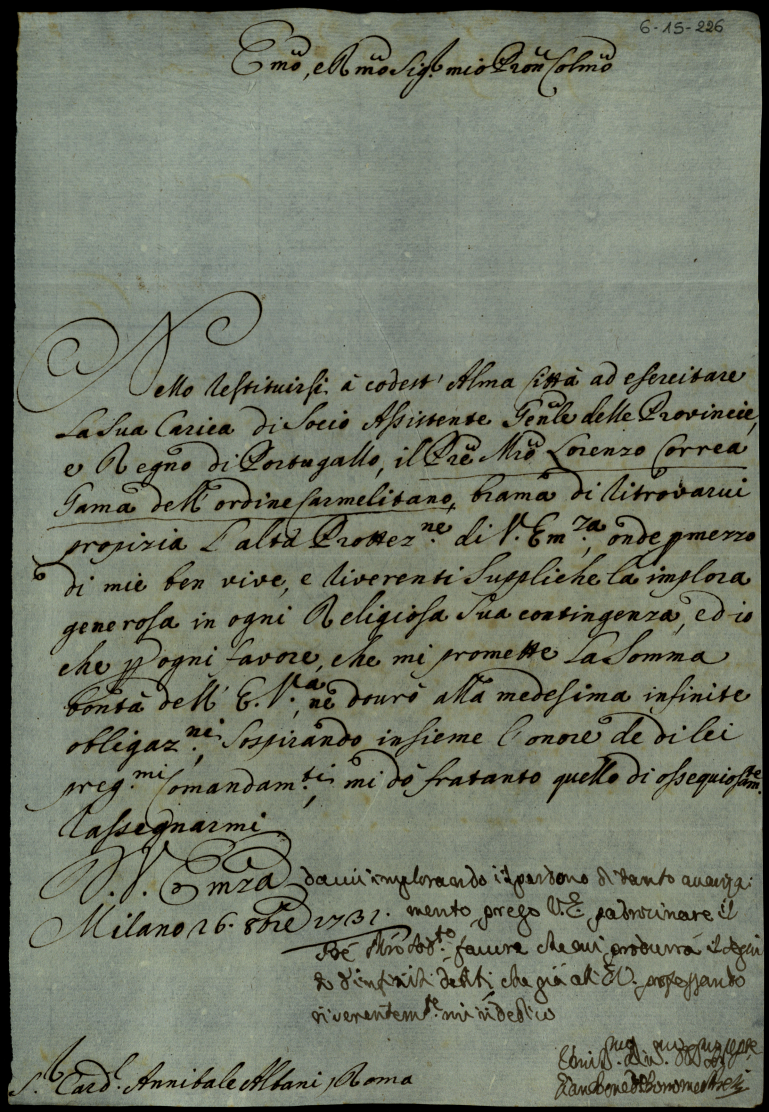 6-15-226
Emo, e Rmo Sigr. mio Pron Colmo
Nello restituirsi à codest' Alma Città ad esercitare
La Sua Carica di Socio Assistente Genle delle Provincie,
e Regno di Portugallo, il Prẽ Mro Lorenzo Correa
Gama dell' ordine Carmelitano, brama di ritrovarvi
propizia l'alta Prottez.ne di V. Em.za, onde p mezzo
di mie ben vive, e riverenti Suppliche la implora
generosa in ogni Religiosa Sua contingenza, ed io
che p ogni favore, che mi promette La Somma
bontà dell' E. V.a, ne dourò alla medesima infinite
obligaz.ni. Sospirando insieme l'onore de di lei
preg.mi Comandam.ti, mi dò fratanto quello di ossequiosam.te
rassegnarmi
D. V. Emza
da cui implorando il perdono di tanto avanza:
Milano 26. 8bre 1731.
mento, prego V.E. patrocinare il
Pẽ Mrõ sod.to, favore che mi produrrà il
d'infiniti debiti che già all' E.V. professando
riverentem.te mi ridedico
S.r Card.l Annibale Albani, Roma